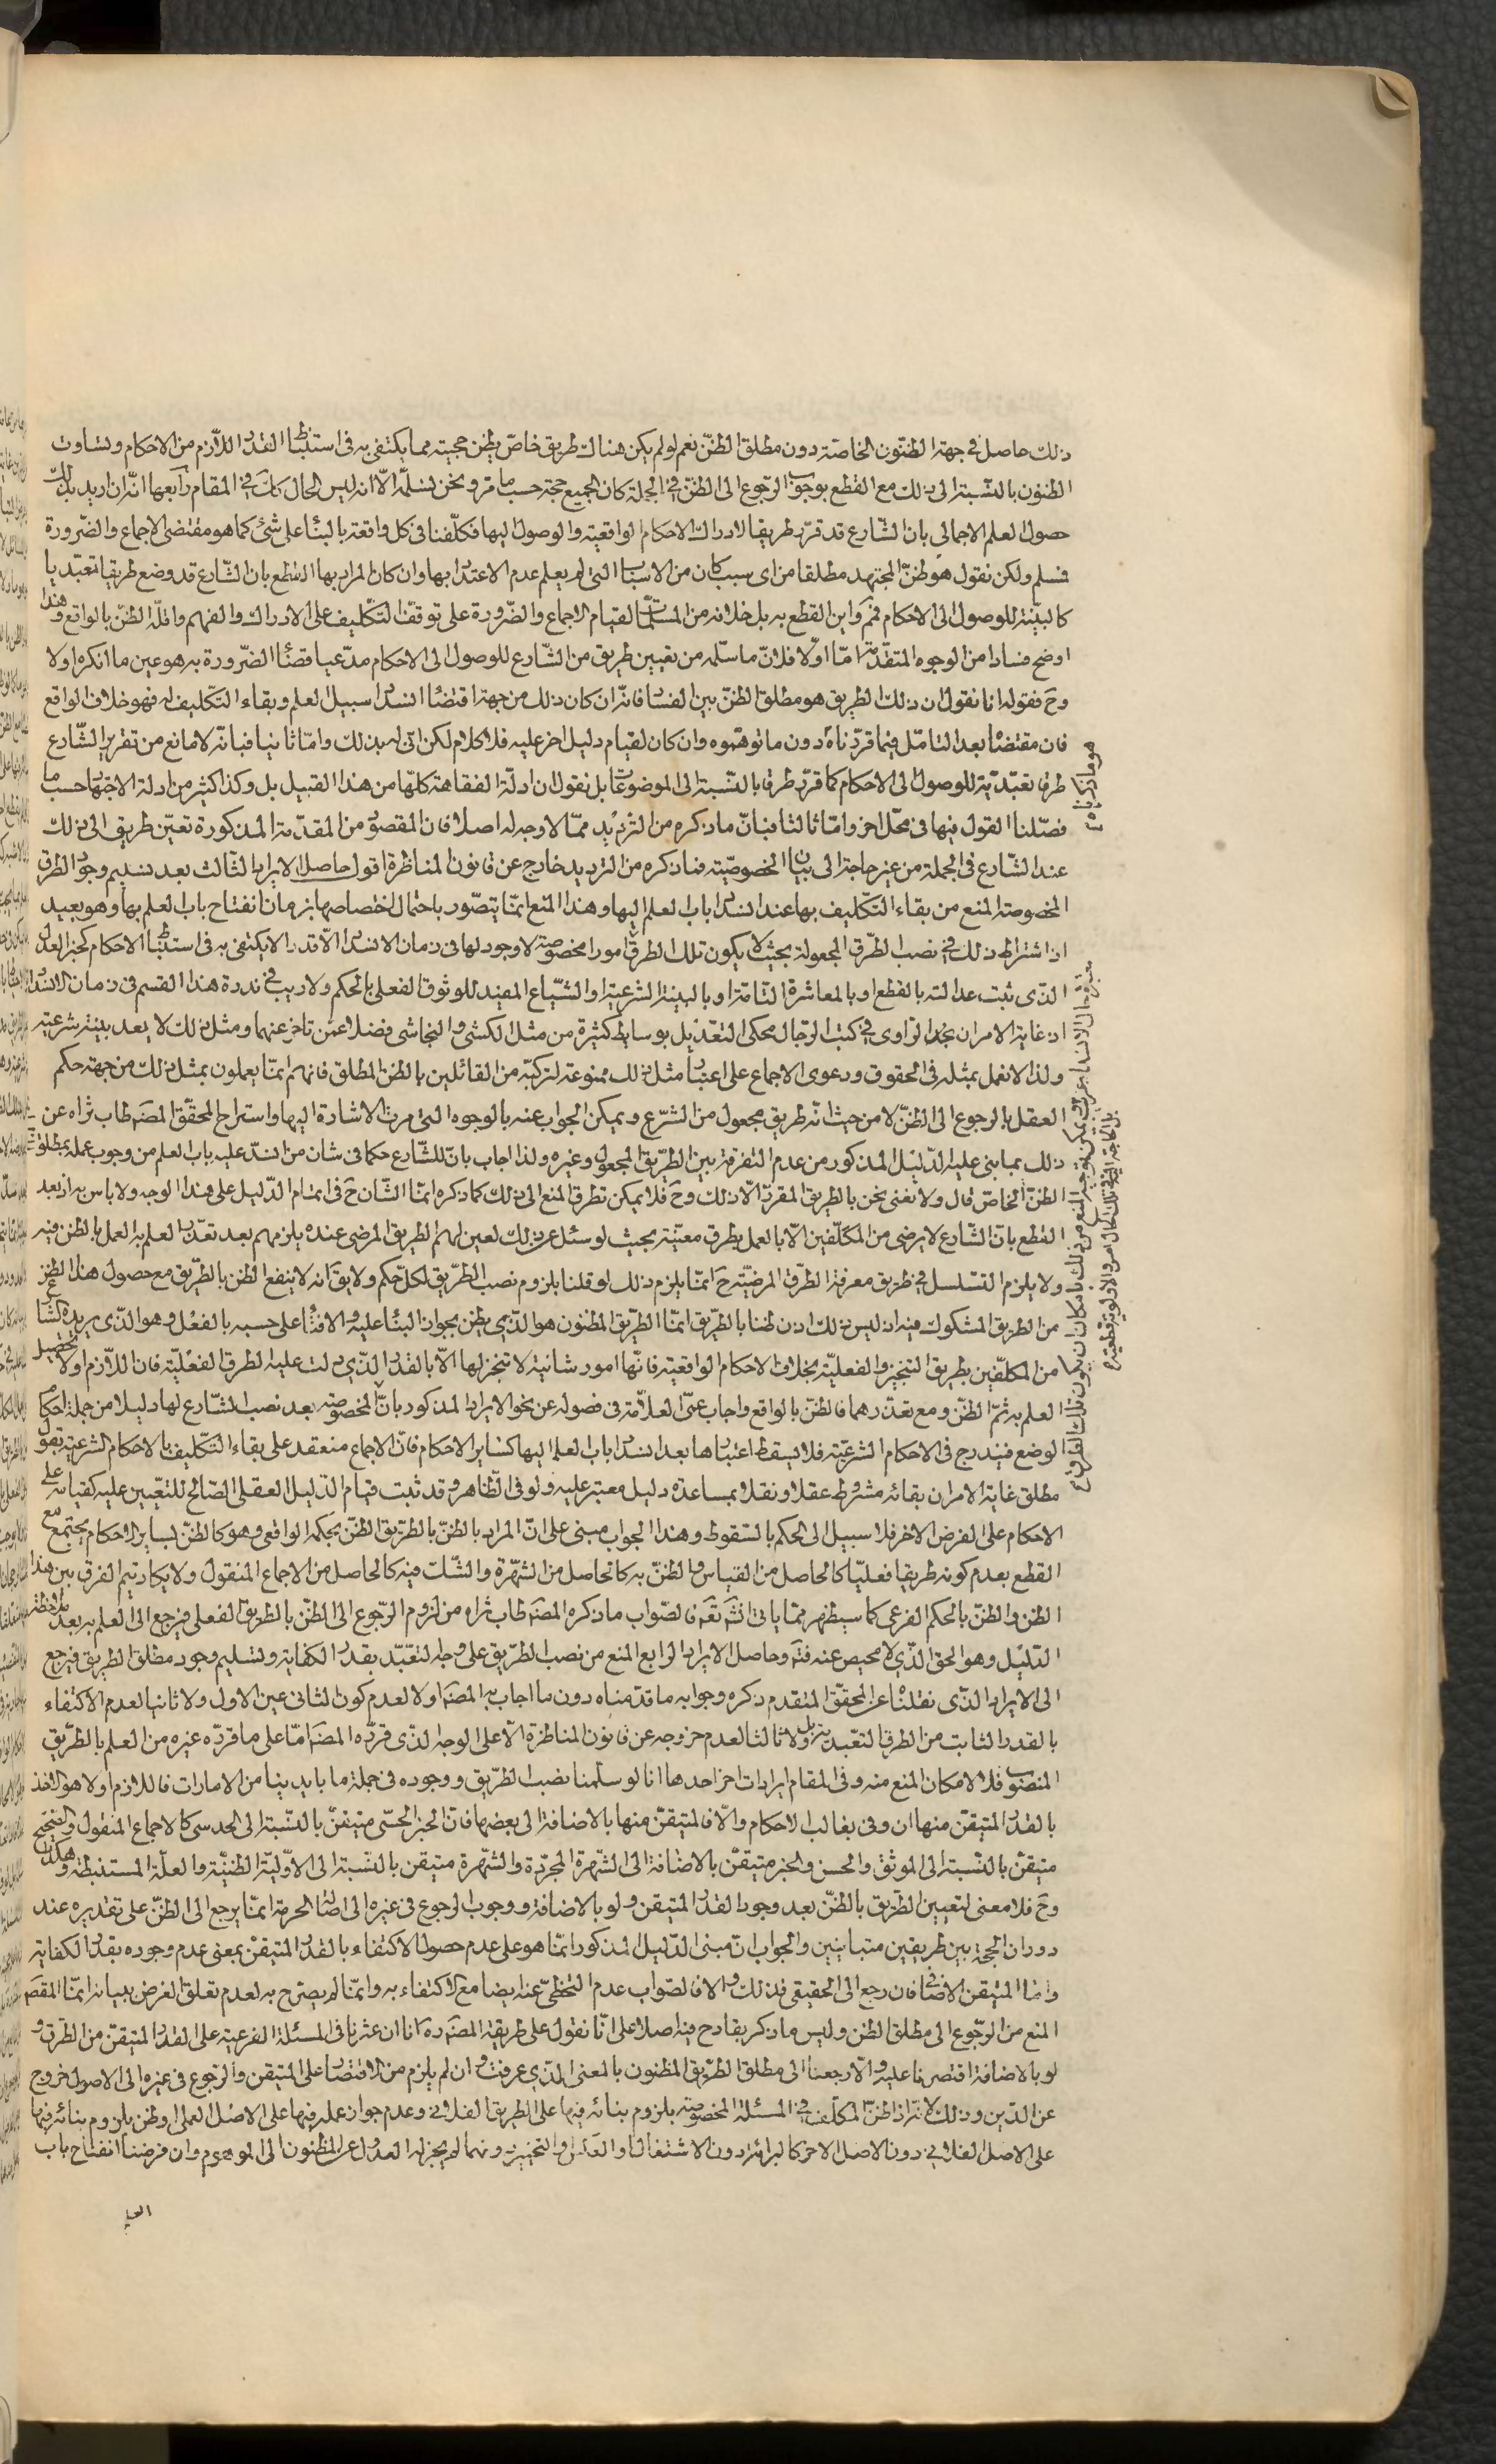 ذلك حاصل في جهة الظنون الخاصة دون مطلق الظن نعم لو لم يكن هناك طريق خاص يظن حجيته مما يكتفى به فى استنباط القدر اللازم من الاحكام وتساوت
الظنون بالنسبة الى ذلك مع القطع بوجوب الرجوع الى الظن في الجملة كان الجميع حجة حسب ما مر ونحن نسلمه الا انه ليس الحال كك في المقام رابعها انه ان اريد بذلك
حصول العلم الاجمالي بان الشارع قد قرر طريقا لادراك الاحكام الواقعية والوصول اليها فكلفنا فى كل واقعة بالبناء على شئ كما هو مقتضى الاجماع والضرورة
فسلم ولكن نقول هو ظن المجتهد مطلقا من اى سبب كان من الاسباب التى لم يعلم عدم الاعتداد بها وان كان المراد بها القطع بان الشارع قد وضع طريقا تعبديا
كالبينة للوصول الى الاحكام فمم واين القطع به بل خلافه من المسلمات لقيام الاجماع والضرورة على توقف التكليف على الادراك والفهم واقله الظن بالواقع وهذا
اوضح فسادا من الوجوه المتقدمة اما اولا فلان ما سلمه من تعيين طريق من الشارع للوصول الى الاحكام مدعيا قضاء الضرورة به هو عين ما انكره اولا
وح فقوله انا نقول ان ذلك الطريق هو مطلق الظن بين الفساد فانه ان كان ذلك من جهة اقتضاء انسداد سبيل العلم وبقاء التكليف له فهو خلاف الواقع
فان مقتضاه بعد التامل فيما قررناه دون ما توهموه وان كان لقيام دليل اخر عليه فلا كلام لكن انى له بذلك واما ثانيا فبانه لا مانع من تقرير الشارع
طرقا تعبدية للوصول الى الاحكام كما قرر طرقا بالنسبة الى الموضوعات بل نقول ان ادلة الفقاهة كلها من هذا القبيل بل وكذا كثير من ادلة الاجتهاد حسب ما
فصلنا القول فيها فى محل اخر واما ثالثا فبان ما ذكره من الترديد مما لا وجه له اصلا فان المقصود من المقدمة المذكورة تعين طريق الى ذلك
عند الشارع فى الجملة من غير حاجة الى بيان الخصوصية فما ذكره من الترديد خارج عن قانون المناظرة اقول حاصل الايراد الثالث بعد تسليم وجود الطرق
المخصوصة المنع من بقاء التكليف بها عند انسداد باب العلم اليها وهذا المنع انما يتصور باحتمال اختصاصها بزمان انفتاح باب العلم بها وهو بعيد
اذ اشتراط ذلك في نصب الطرق المجعولة بحيث لا يكون تلك الطرق امورا مخصوصة لا وجود لها فى زمان الانسداد الا قدر لا يكتفى به فى استنباط الاحكام كخبر العدل
الذى ثبت عدالته بالقطع او بالمعاشرة التامة او بالبينة الشرعية او الشياع المفيد للوثوق الفعلى بالحكم ولا ريب في ندرة هذا القسم فى زمان الانسداد
اذ غاية الامر ان نجد الراوى في كتب الرجال محكى التعديل بوسايط كثيرة من مثل الكشى والنجاشى فضلا عمن تاخر عنهما ومثل ذلك لا يعد بينة شرعية
ولذا لا نعمل بمثله فى الحقوق ودعوى الاجماع على اعتبار مثل ذلك ممنوعة لتركبه من القائلين بالظن المطلق فانهم انما يعملون بمثل ذلك من جهة حكم
العقل بالرجوع الى الظن لا من حيث انه طريق مجعول من الشرع ويمكن الجواب عنه بالوجوه التى مرت الاشارة اليها واستراح المحقق المصنف طاب ثراه عن
ذلك بما بنى عليه الدليل المذكور من عدم التفرقة بين الطريق المجعول وغيره ولذا اجاب بان للشارع حكما فى شان من انسد عليه باب العلم من وجوب عمله بمطلق
الظن الخاص قال ولا نعنى نحن بالطريق المقرر الا ذلك وح فلا يمكن تطرق المنع الى ذلك كما ذكره انما الشان ح فى اتمام الدليل على هذا الوجه ولا باس به اذ بعد
القطع بان الشارع لا يرضى من المكلفين الا بالعمل بطرق معينة بحيث لو سئل عن ذلك لعين لهم الطريق المرضى عنده يلزمهم بعد تعذر العلم به العمل بالظن فيه
ولا يلزم التسلسل في طريق معرفة الطرق المرضية ح انما يلزم ذلك لو قلنا بلزوم نصب الطريق لكل حكم ولا يق انه لا ينفع الظن بالطريق مع حصول هذا الظن
من الطريق المشكوك فيه اذ ليس ذلك اذن ظنا بالطريق انما الطريق المظنون هو الذى يظن بجواز البناء عليه والافتاء على حسبه بالفعل وهو الذى يريده الشارع
من المكلفين بطريق التنجيز والفعلية بخلاف الاحكام الواقعية فانها امور شانية لا تنجز لها الا بالقدر الذى دلت عليه الطرق الفعلية فان اللازم اولا تحصيل
العلم به ثم الظن ومع تعذرهما فالظن بالواقع واجاب عنى العلامة فى فصوله عن نحو الايراد المذكور بان الخصوصية بعد نصب الشارع لها دليلا من جملة احكام
الوضع فيندرج فى الاحكام الشرعية فلا يسقط اعتبارها بعد انسداد باب العلم اليها كساير الاحكام فان الاجماع منعقد على بقاء التكليف بالاحكام الشرعية بقول
مطلق غاية الامر ان بقائه مشروط عقلا ونقلا بمساعدة دليل معتبر عليه ولو فى الظاهر وقد ثبت قيام الدليل العقلى الصالح للتعيين عليه كقيامه على
الاحكام على الفرض الاخر فلا سبيل الى الحكم بالسقوط وهذا الجواب مبنى على ان المراد بالظن بالطريق الظن بحكمه الواقعى وهو كالظن بساير الاحكام يجتمع مع
القطع بعدم كونه طريقا فعليا كالحاصل من القياس والظن به كالحاصل من الشهرة والشك فيه كالحاصل من الاجماع المنقول ولا يكاد يتم الفرق بين هذا
الظن والظن بالحكم الفرعى كما سيظهر مما ياتى انشَ تعَه فالصواب ما ذكره المصنف طاب ثراه من لزوم الرجوع الى الظن بالطريق الفعلى فيرجع الى العلم به بعد ملاحظة
الدليل وهو الحق الذى لا محيص عنه فتَه وحاصل الايراد الرابع المنع من نصب الطريق على وجه التعبد بقدر الكفاية وتسليم وجود مطلق الطريق فيرجع
الى الايراد الذى نقلناه عن المحقق المتقدم ذكره وجوابه ما قدمناه دون ما اجاب به المصنف اولا لعدم كون الثانى عين الاول ولا ثانيا لعدم الاكتفاء
بالقدر الثابت من الطرق التعبدية بل ولا ثالثا لعدم خروجه عن قانون المناظرة الا على الوجه الذى قرره المصنف اما على ما قرره غيره من العلم بالطريق
المنصوب فلا لامكان المنع منه وفى المقام ايرادات اخر احدها انا لو سلمنا نصب الطريق ووجوده فى جملة ما بايدينا من الامارات فاللازم اولا هو الاخذ
بالقدر المتيقن منها ان وفى بغالب الاحكام والا فالمتيقن منها بالاضافة الى بعضها فان الخبر الحسى متيقن بالنسبة الى الحدسى كالاجماع المنقول والصحيح
متيقن بالنسبة الى الموثق والحسن والخبر متيقن بالاضافة الى الشهرة المجردة والشهرة متيقن بالنسبة الى الاولية الظنية والعلة المستنبطة وهكذا
وح فلا معنى لتعيين الطريق بالظن بعد وجود القدر المتيقن ولو بالاضافة ووجوب الرجوع فى غيره الى اصالة الحرمة انما يرجع الى الظن على تقديره عند
دوران الحجة بين طريقين متباينين والجواب ان مبنى الدليل المذكور انما هو على عدم حصول الاكتفاء بالقدر المتيقن بمعنى عدم وجوده بقدر الكفاية
واما المتيقن الاضافى فان رجع الى الحقيقى فذلك والا فالصواب عدم التخطى عنه ايضا مع الاكتفاء به وانما لم يصرح به لعدم تعلق الغرض ببيانه انما المقصَ
المنع من الرجوع الى مطلق الظن وليس ما ذكر بقادح فيه اصلا على انا نقول على طريقة المصنف ره انا ان عثرنا فى المسئلة الفرعية على القدر المتيقن من الطرق و
لو بالاضافة اقتصرنا عليه والا رجعنا الى مطلق الطريق المظنون بالمعنى الذى عرفت وان لم يلزم من الاقتصار على المتيقن والرجوع فى غيره الى الاصول خروج
عن الدين وذلك لانه اذا ظن المكلف في المسئلة المخصوصة بلزوم بنائه فيها على الطريق الفلانى وعدم جواز عمله فيها على الاصل العملى او ظن بلزوم بنائه فيها
على الاصل الفلانى دون الاصل الاخر كالبرائة دون الاشتغال او العكس والتخيير دونهما لم يجز له العدول عن المظنون الى الموهوم وان فرضنا انفتاح باب
العلم